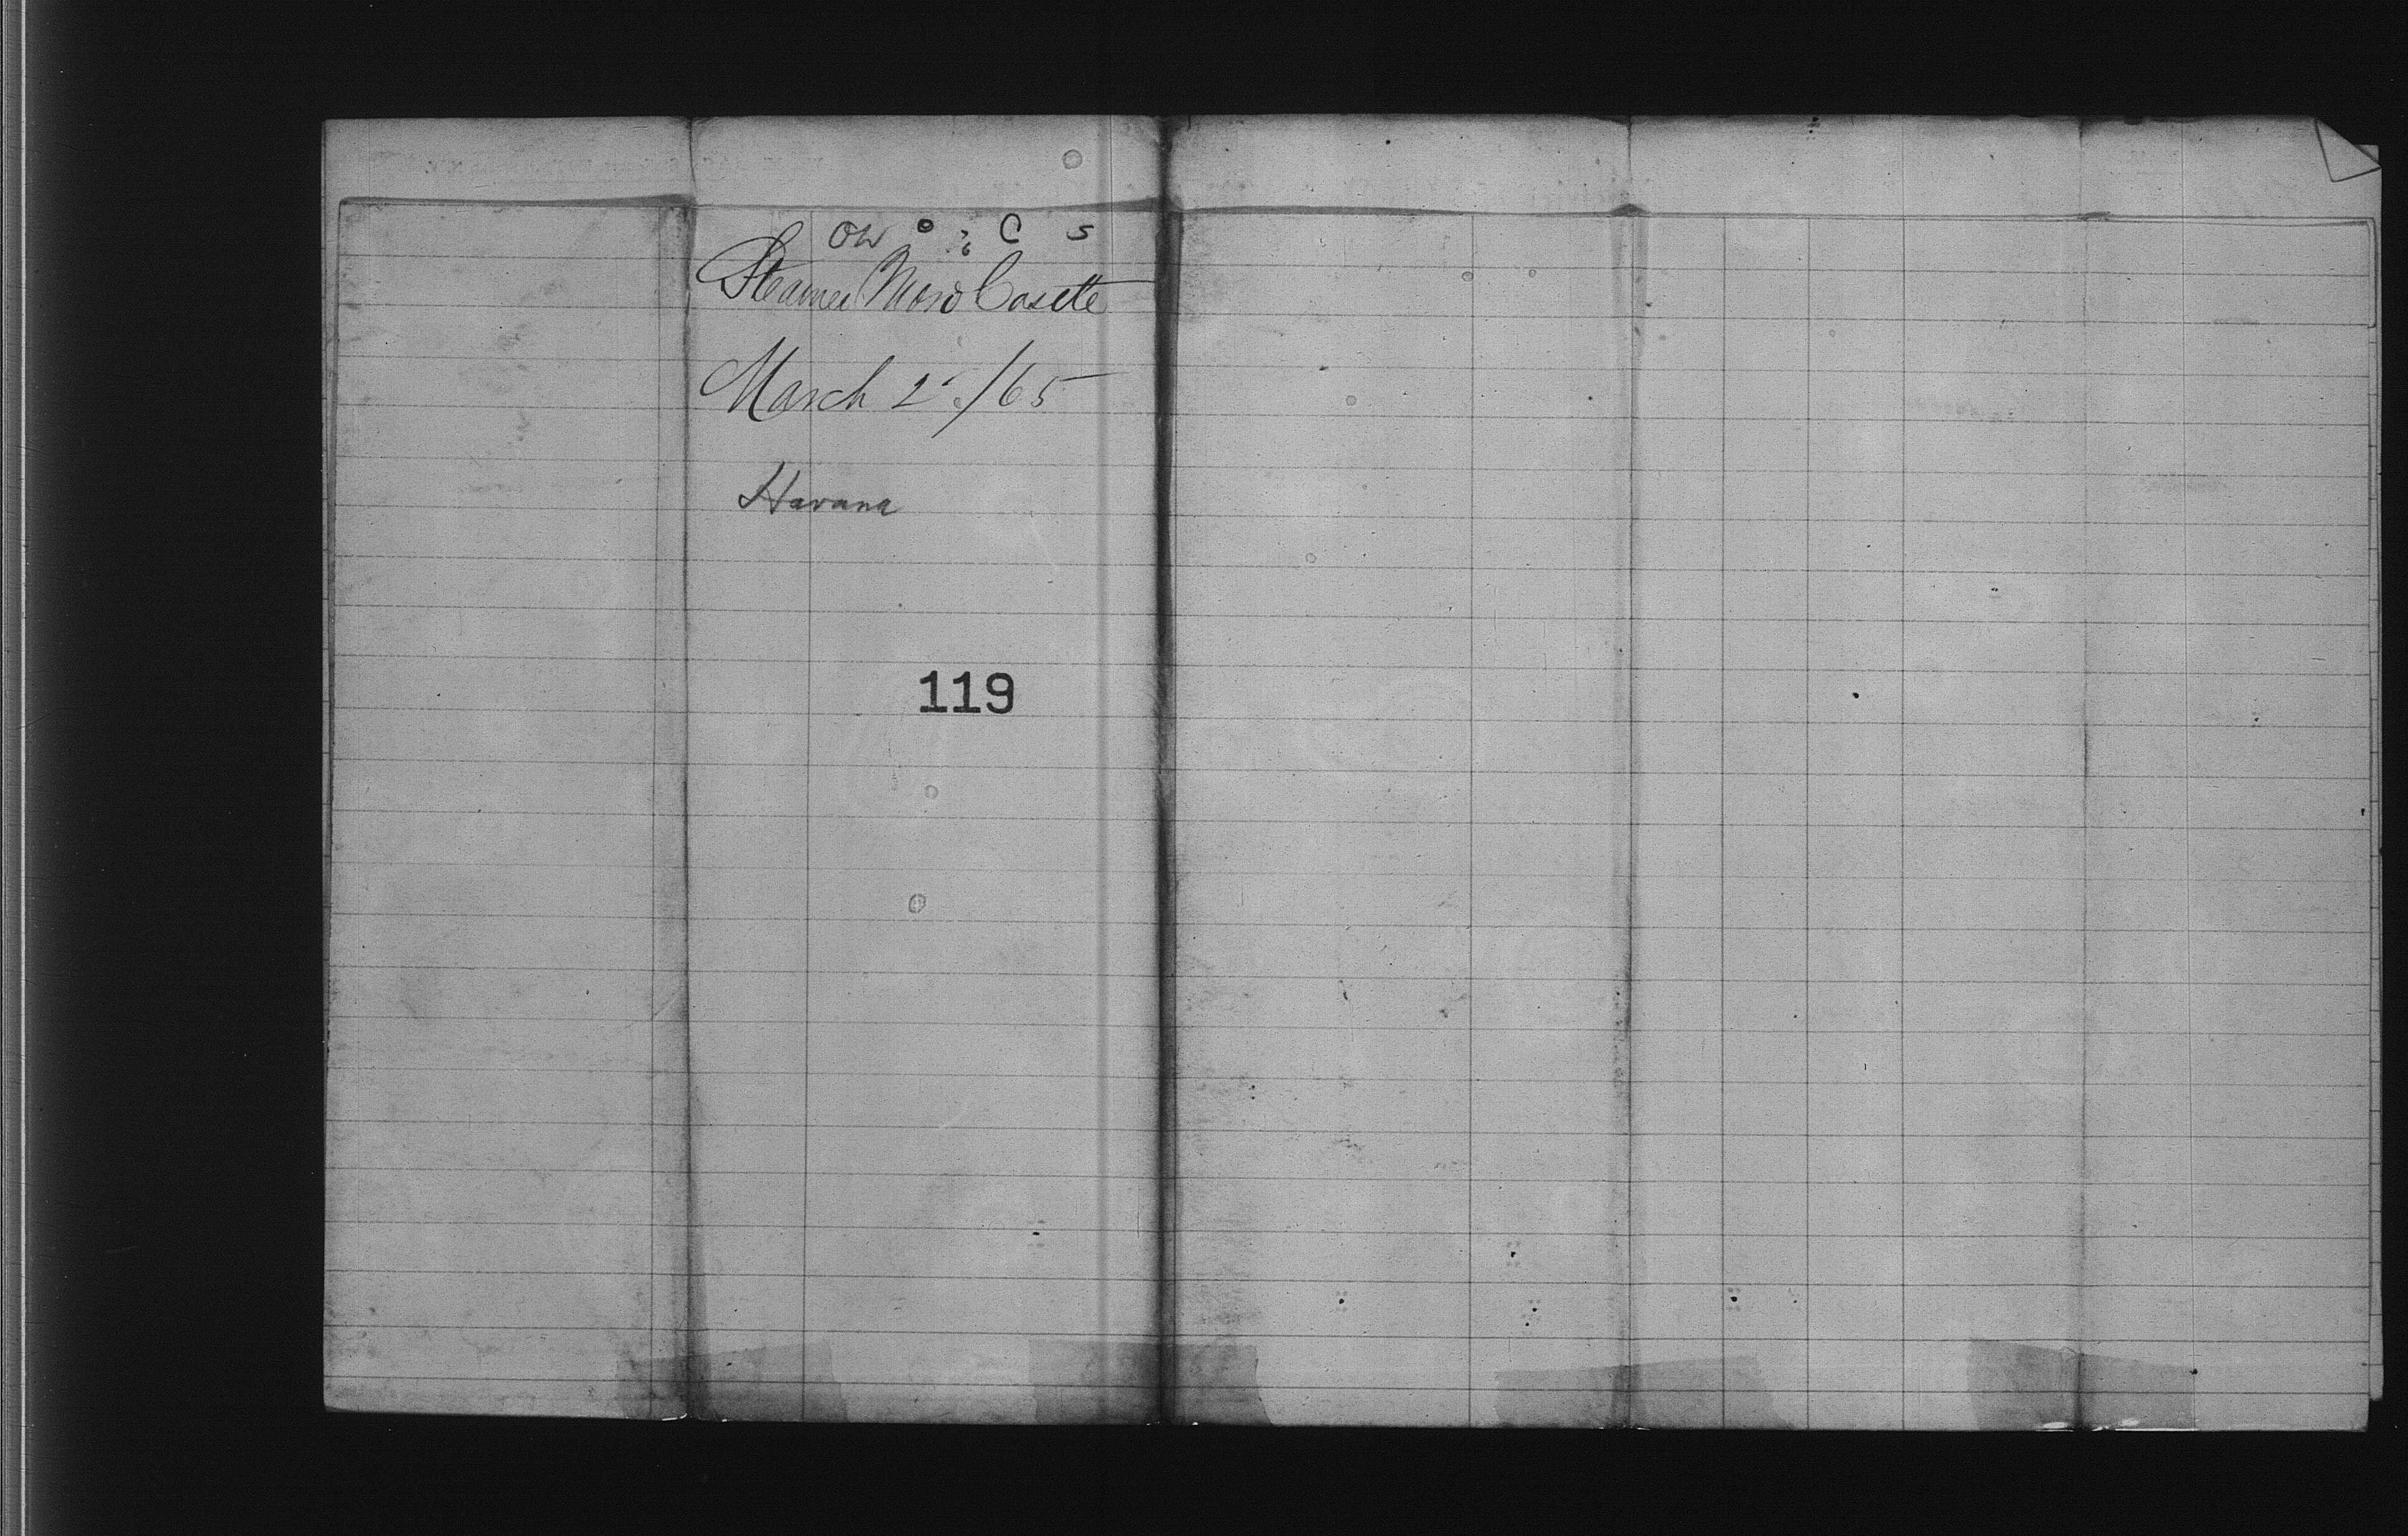 Steamer Moro Castle
March 2 /65
Havana
119